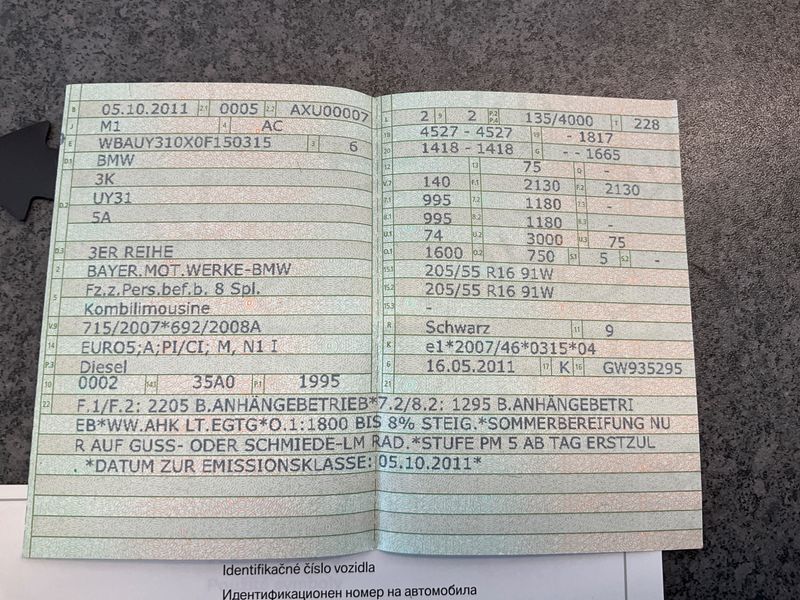 B 05.10.2011 2.1 0005 2.2 AXU00007
J M1 4 AC
E WBAUY310X0F150315 3 6
D.1 BMW
3K
D.2 UY31
5A
D.3 3ER REIHE
2 BAYER.MOT.WERKE-BMW
Fz.z.Pers.bef.b. 8 Spl.
5 Kombilimousine
V.9 715/2007*692/2008A
14 EURO5;A;PI/CI; M, N1 I
P.3 Diesel
10 0002 14.1 35A0 P.1 1995
L 2 9 2 P.2 P.4 135/4000 T 228
18 4527 - 4527 19 - 1817
20 1418 - 1418 G - - 1665
12 13 75 Q -
V.7 140 F.1 2130 F.2 2130
7.1 995 7.2 1180 7.3 -
8.1 995 8.2 1180 8.3 -
U.1 74 U.2 3000 U.3 75
O.1 1600 O.2 750 S.1 5 S.2 -
15.1 205/55 R16 91W
15.2 205/55 R16 91W
15.3 -
R Schwarz 11 9
K e1*2007/46*0315*04
6 16.05.2011 17 K 16 GW935295
21
22 F.1/F.2: 2205 B.ANHÄNGEBETRIEB*7.2/8.2: 1295 B.ANHÄNGEBETRI
EB*WW.AHK LT.EGTG*O.1:1800 BIS 8% STEIG.*SOMMERBEREIFUNG NU
R AUF GUSS- ODER SCHMIEDE-LM RAD.*STUFE PM 5 AB TAG ERSTZUL
.*DATUM ZUR EMISSIONSKLASSE: 05.10.2011*
Identifikačné číslo vozidla
Идентификационен номер на автомобила